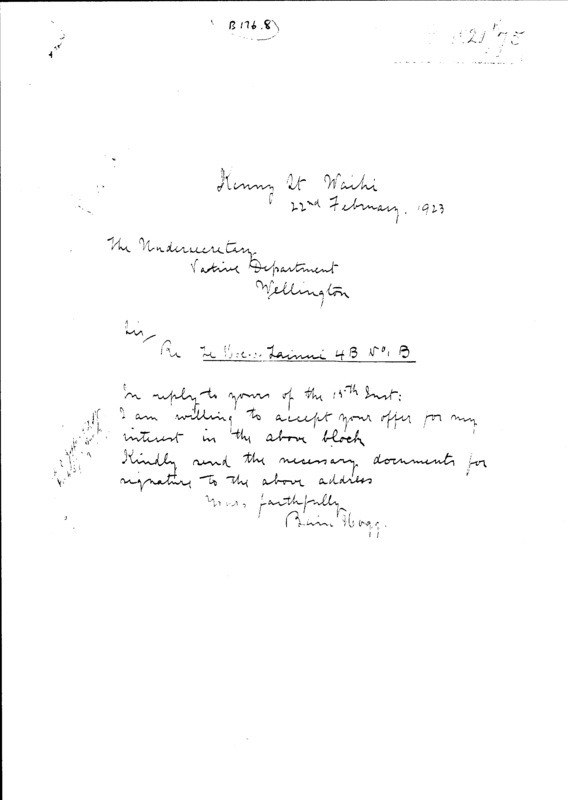 B 176.8
21/75
Kenny St Waihi
22nd February. 1923
The Undersecretary
Native Department
Wellington
Sir
Re Te Tainui 4B No. 1 B
In reply to yours of the 15th Inst:
I am willing to accept your offer for my
interest in the above block
Kindly send the necessary documents for
signature to the above address
Yours faithfully
Hogg.